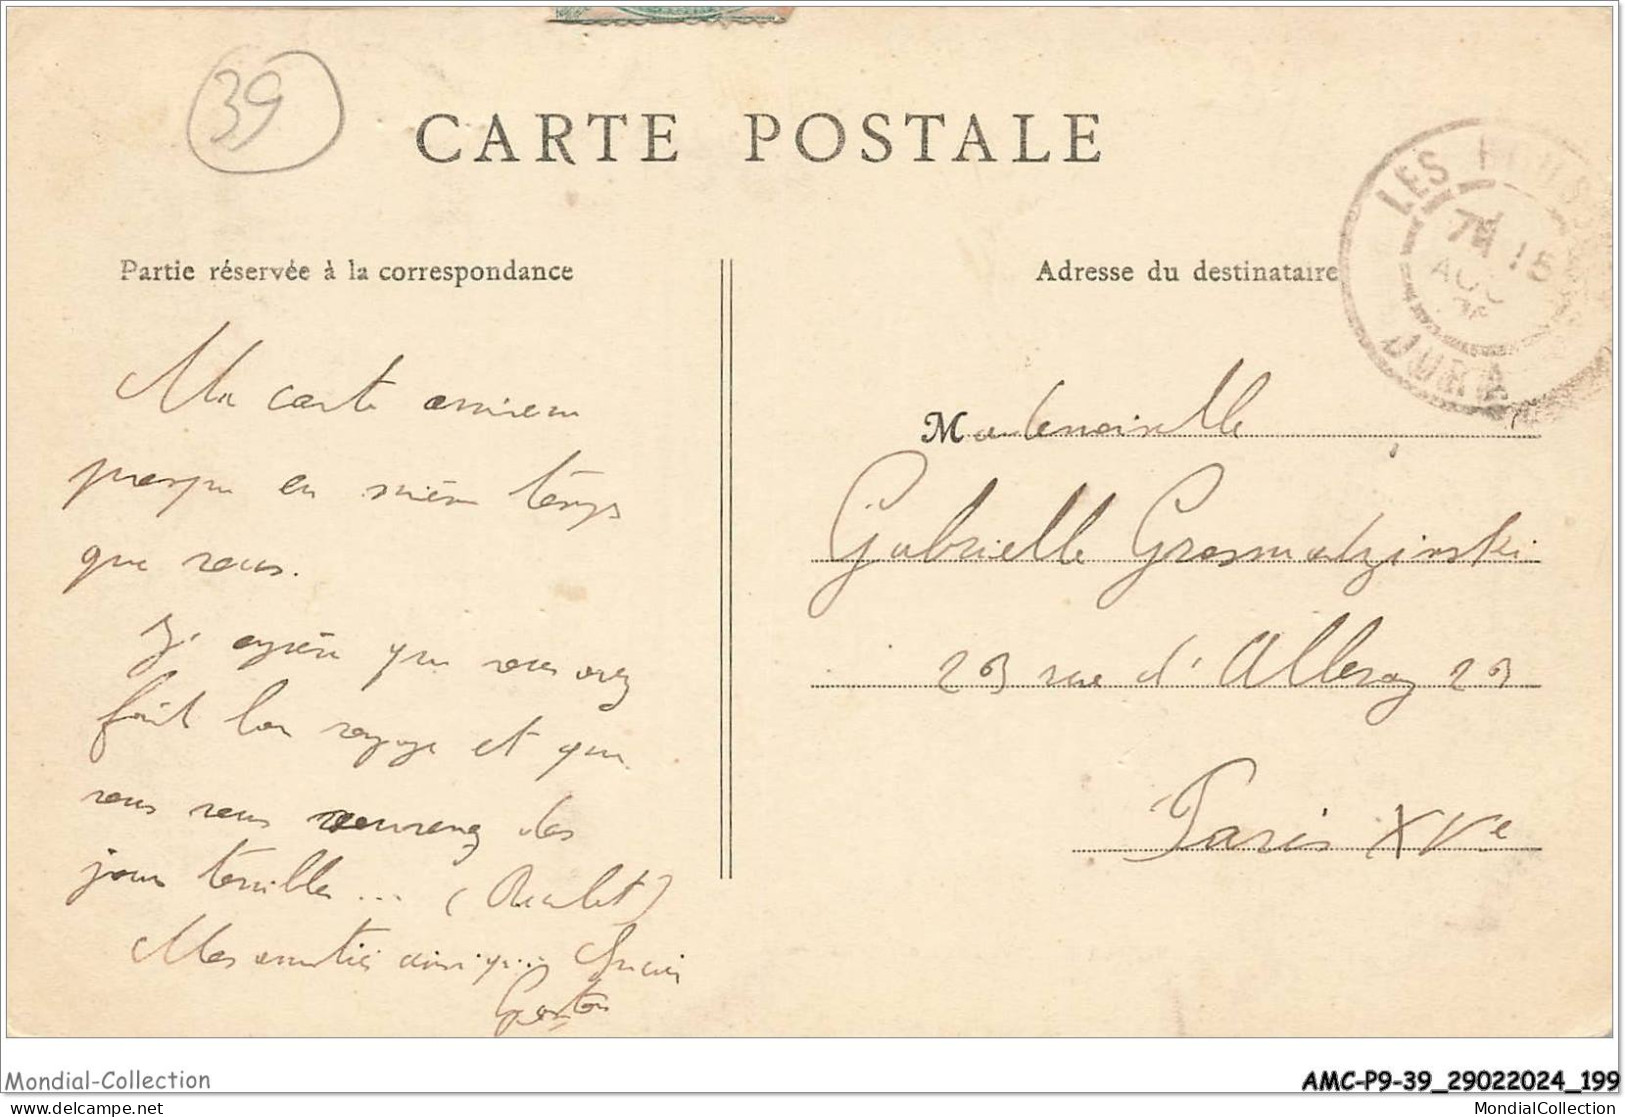 39
CARTE POSTALE
LES ROUSSES
7 15
AOU
JURA
Partie réservée à la correspondance
Adresse du destinataire
Ma carte arrivera
presque en même temps
que vous.
J'espère que vous avez
fait bon voyage et que
vous vous souvenez des
jours terribles... (Oucht)
Mes amitiés ainsi q... Lucien
Gaston
Mademoiselle
Gabrielle Grosmadzinski
23 rue d'Alleray 23
Paris XVe
Mondial-Collection
AMC-P9-39_29022024_199
www.delcampe.net
MondialCollection